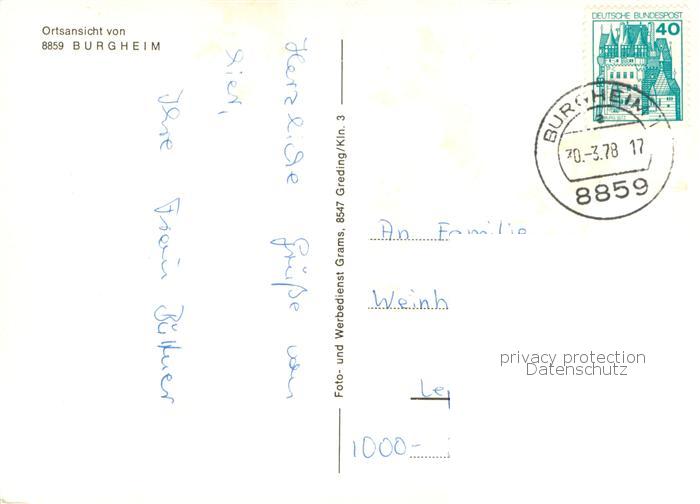 Ortsansicht von
8859 BURGHEIM
Herzliche Grüße von
hier,
Ihre Frau Büttner
Foto- und Werbedienst Grams, 8547 Greding/Kln. 3
DEUTSCHE BUNDESPOST
40
BURGHEIM
a
-3.78 17
8859
An Familie
Weinh
Le
1000-
privacy protection
Datenschutz